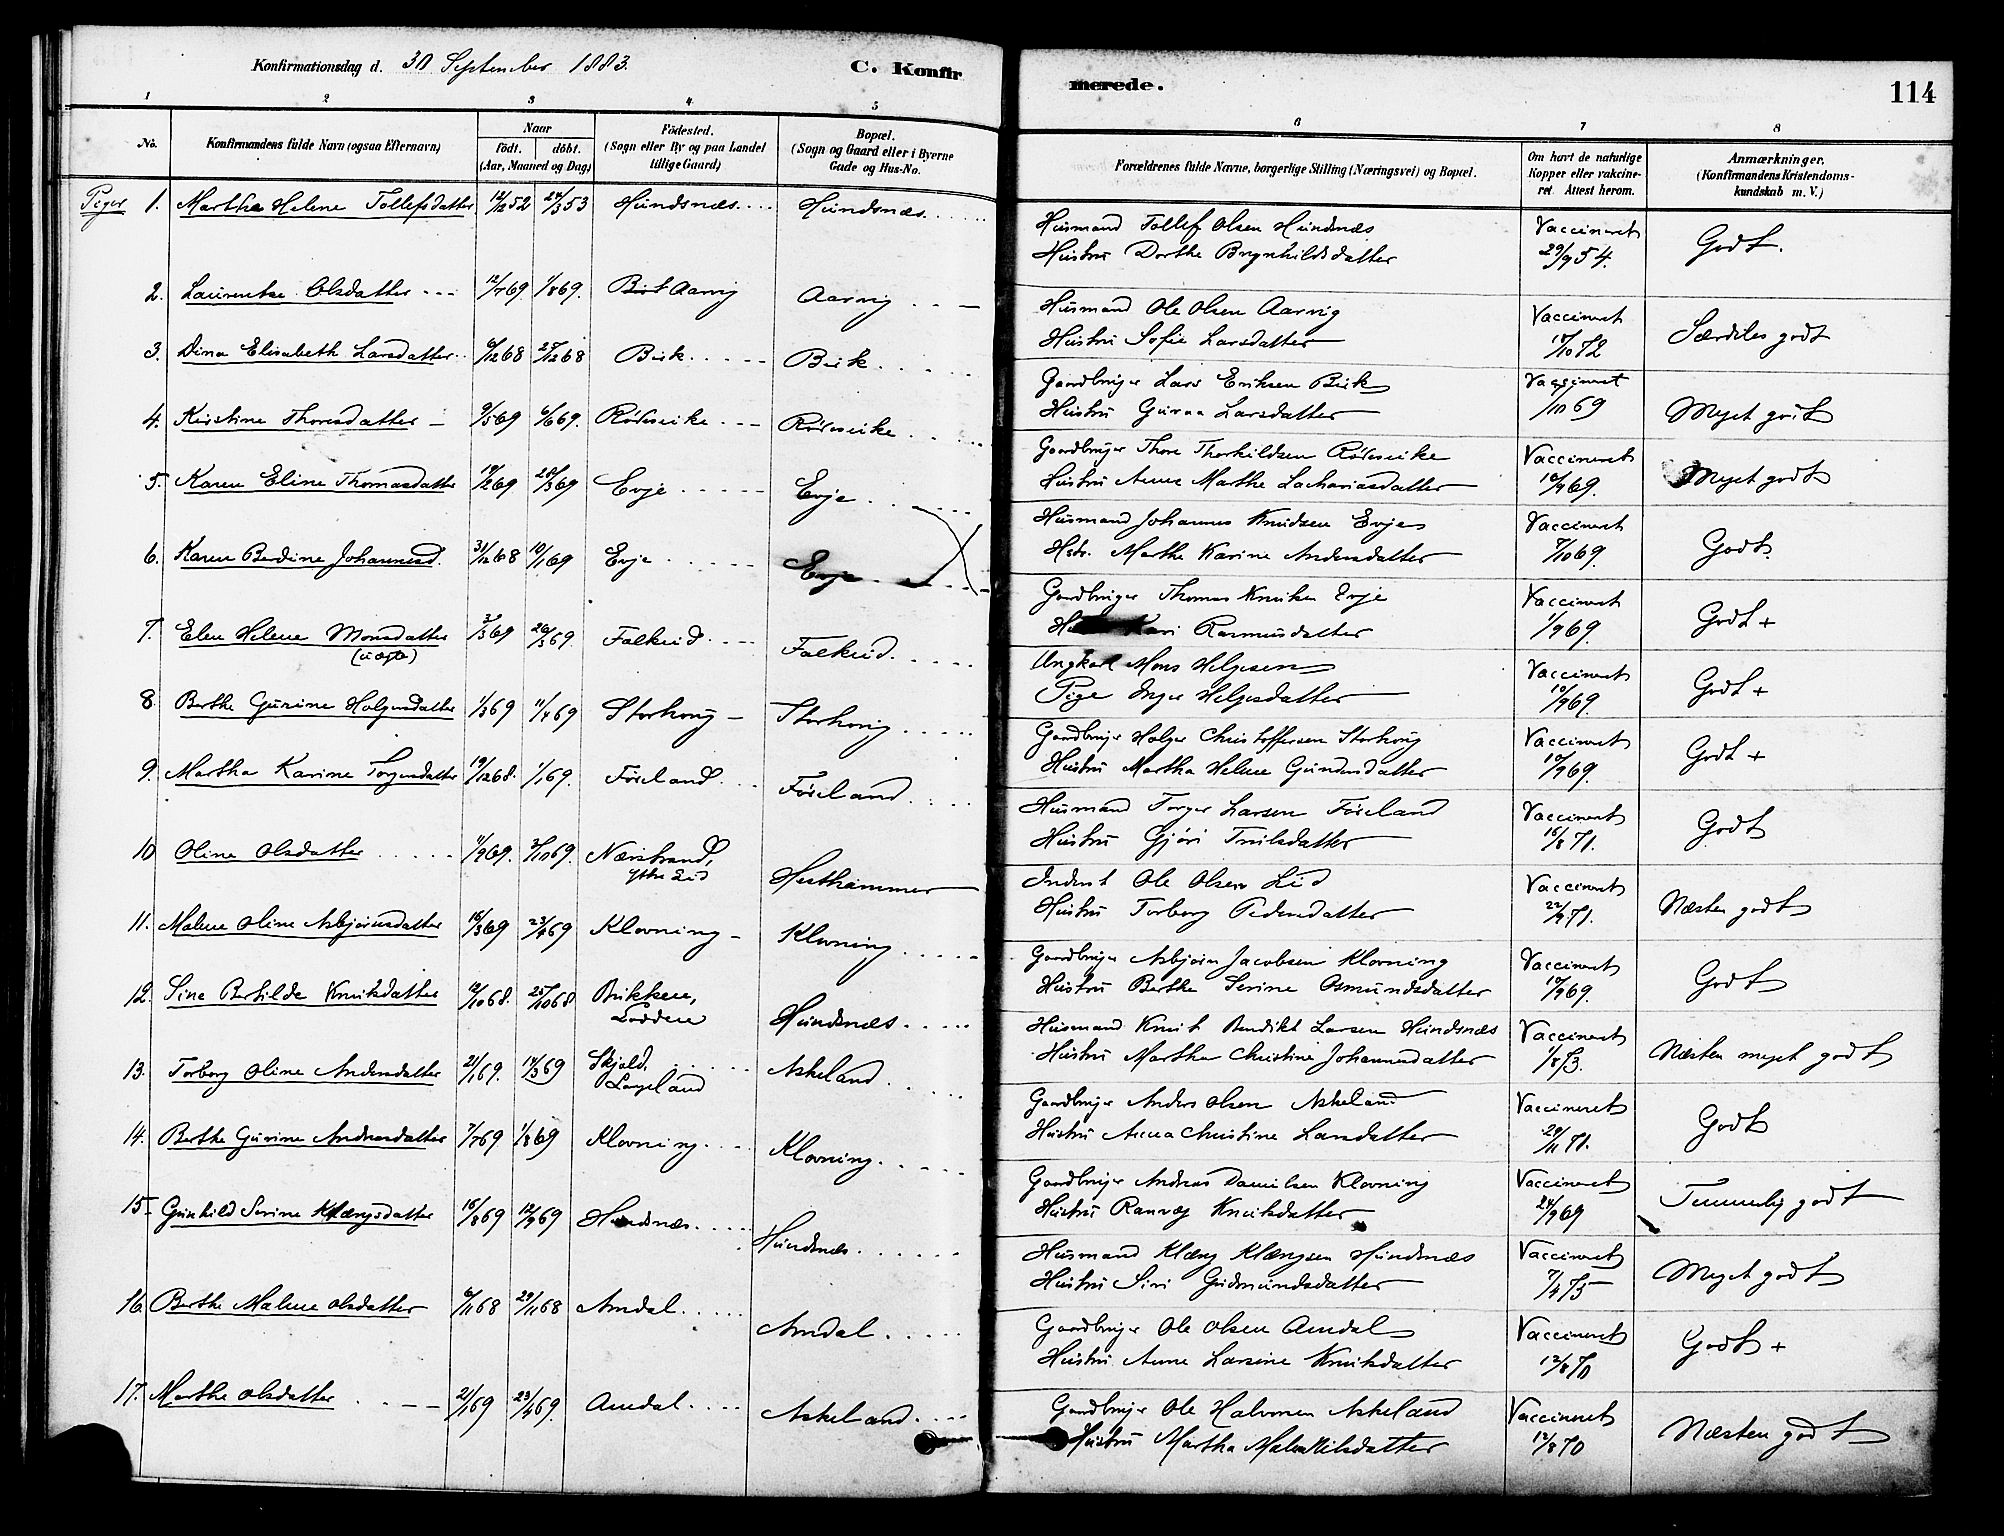 Konfirmationsdag d. 30 September 1883.
C. Konfirmerede.
114
1 2 3 4 5 6 7 8
No.
Konfirmandens fulde Navn (ogsaa Efternavn)
Naar
födt. döbt.
(Aar, Maaned og Dag)
Födested.
(Sogn eller By og paa Landet tillige Gaard)
Bopæl.
(Sogn og Gaard eller i Byerne Gade og Hus-No.
Forældrenes fulde Navne, borgerlige Stilling (Næringsvei) og Bopæl.
Om havt de naturlige Kopper eller vaccineret. Attest herom.
Anmærkninger.
(Konfirmandens Kristendomskundskab m. V.)
Piger 1. Marthe Helene Tollefsdatter 12/12 52 28/3 53 Hundsnæs Hundsnæs
Husmand Tollef Olsen Hundsnæs
Hustru Dorthe Brynhildsdatter
Vaccineret 29/9 54. Godt.
2. Laurentse Olsdatter 12/7 69 1/8 69. Aarvig Aarvig
Husmand Ole Olsen Aarvig
Hustru Sofie Larsdatter
Vaccineret 18/10 72 Særdiles godt
3. Dina Elisabeth Larsdatter 6/12 68 27/12 68 Birk Birk
Gaardbruger Lars Eriksen Birk
Hustru Guroa Larsdatter
Vaccineret 1/10 69 Meget godt
4. Kirstine Thoresdatter 9/5 69 6/6 69. Rödseike Rödseike
Gaardbruger Thore Thorkildsen Rödseike
Hustru Anne Marthe Zachariasdatter
Vaccineret 10/9 69. Meget godt
5. Karen Eline Thomasdatter 19/2 69 28/3 69 Evje Evje
Husmand Johannes Knudsen Evje
Hstr. Marthe Karine Andersdatter
Vaccineret 7/10 69. Godt.
6. Karen Berdine Johannesd. 31/12 68 10/1 69 Evje Evje
Gaardbruger Thomas Knutsen Evje
Kari Rasmusdatter
Vaccineret 1/9 69. Godt +
7. Elen Helene Monsdatter 3/3 69 28/3 69 Falkeid Falkeid
(uægte)
Ungkarl Mons Helgesen
Pige Inger Helgesdatter
Vaccineret 10/9 69. Godt +
8. Berthe Gurine Holgersdatter 1/3 69 11/4 69 Storhoug Storhoug
Gaardbruger Holger Christoffersen Storhoug
Hustru Martha Helene Gundersdatter
Vaccineret 10/9 69. Godt +
9. Martha Karine Torgersdatter 19/12 68. 1/1 69. Föseland Föseland
Husmand Torger Larsen Föseland
Hustru Gjöri Truilsdatter
Vaccineret 15/8 71. Godt
10 Oline Olsdatter 11/9 69. 3/10 69. Nærstrand, Hesthammer
ytre Lid
Inderst Ole Olsen Lid
Hustru Torborg Pedersdatter
Vaccineret 22/9 71. Næsten godt
11. Malene Oline Asbjörnsdatter 16/3 69 23/4 69 Klovning Klovning
Gaardbruger Asbjörn Jacobsen Klovning
Hustru Berthe Serine Osmundsdatter
Vaccineret 17/9 69. Godt
12. Sine Bertilde Knutsdatter 12/10 68. 25/10 68 Hundsnæs
Husmand Knut Bendikt Larsen Hundsnæs
Hustru Martha Christine Johannesdatter
Vaccineret 1/8 73. Næsten meget godt
13. Torborg Oline Andersdatter 21/1 69. 14/3 69 Skjold, Askeland
Langeland
Gaardbruger Anders Olsen Askeland
Hustru Anna Christine Larsdatter
Vaccineret 20/11 71. Godt
14. Berthe Gurine Andreasdatter 7/7 69 1/8 69 Klovning Klovning
Gaardbruger Andreas Danielsen Klovning
Hustru Ranveg Knutsdatter
Vaccineret 24/9 69 Temmelig godt
15. Gunhild Serine Klængsdatter 15/8 69 12/9 69 Hundsnæs Hundsnæs
Husmand Klæng Klængsen Hundsnæs
Hustru Siri Gudmundsdatter
Vaccineret 7/4 75 Meget godt
16. Berthe Malene Olsdatter 6/11 68 29/11 68 Amdal Amdal
Gaardbruger Ole Olsen Amdal
Hustru Anne Larsine Knutsdatter
Vaccineret 12/8 70 Godt +
17. Marthe Olsdatter 21/1 69 23/4 69. Amdal Askeland
Gaardbruger Ole Halvorsen Askeland
Hustru Martha Malene Nilsdatter
Vaccineret 12/8 70 Næsten godt